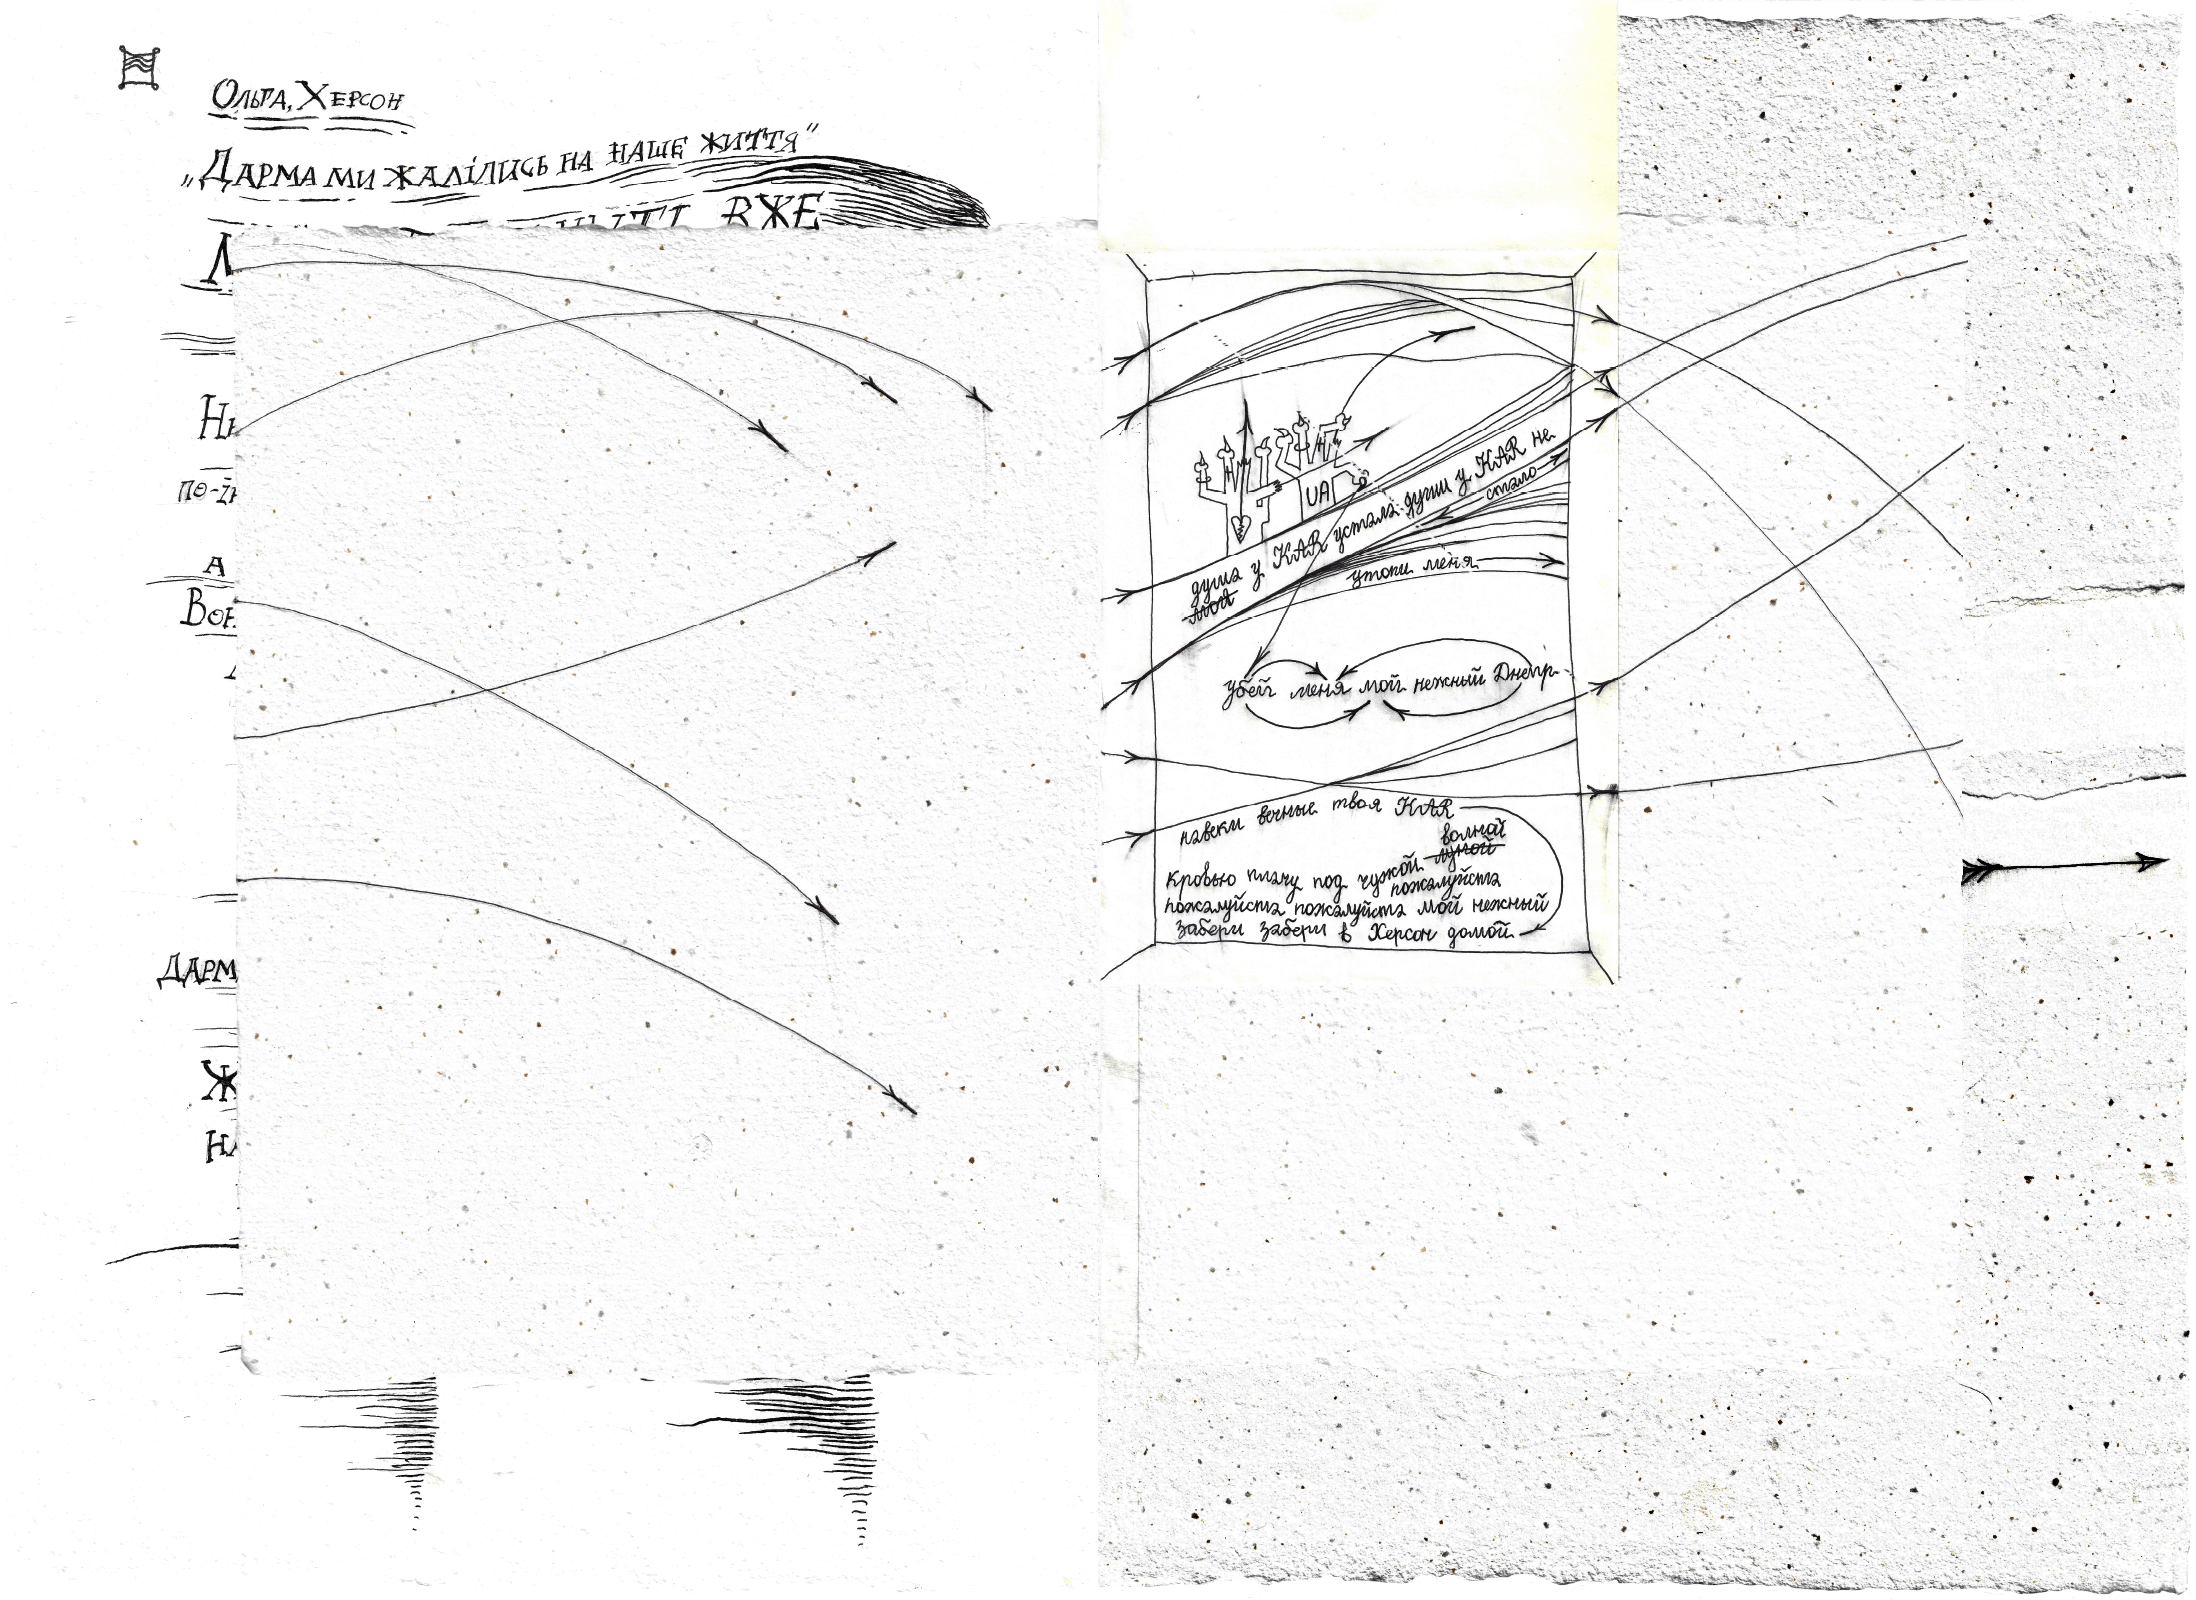 Ольга, Херсон
„Дарма ми жалілись на наше життя”
вже
по-
а
Дарм
Ж
UA
душа у KAR устала. души у KAR не
стало
мой
утопи меня
убей меня мой нежный Днепр
навеки вечные твоя KAR
волной
кровью плачу под чужой луной
пожалуйста
пожалуйста пожалуйста мой нежный
забери забери в Херсон домой